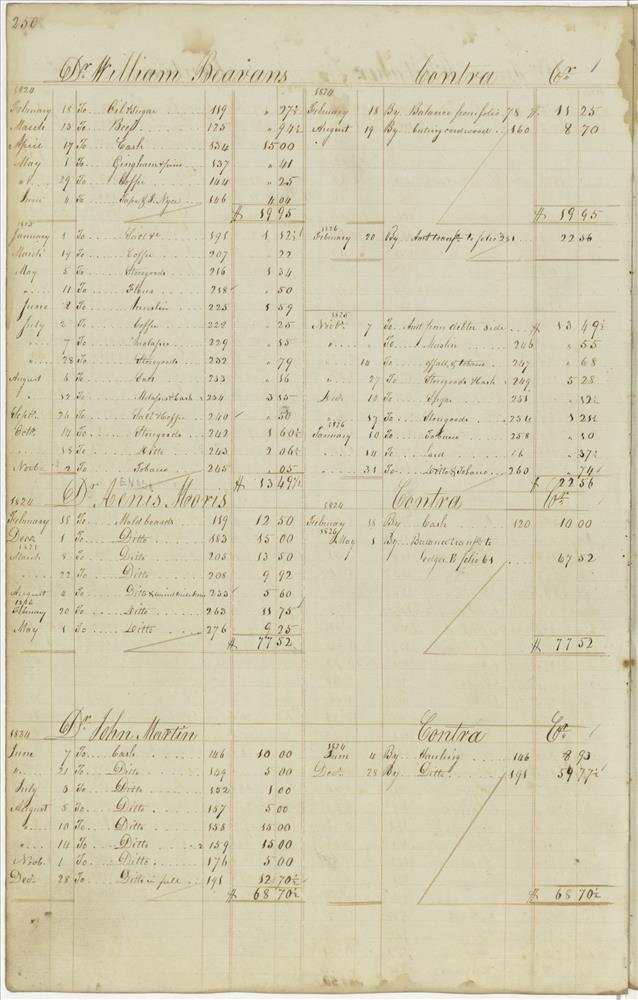 250
Dr. William Beavans Contra Cr. 1
1824 1824
February 18 To Oil & Sugar 119 " 27½ February 18 By Balance from folio 78 $ 11 25
March 13 To Beef 125 " 94½ August 19 By Cuting cordwood 160 8 70
April 17 To Cash 134 15 00
May 1 To Gingham & pins 137 " 41
" 29 To Coffe 144 " 25
June 4 To 146 4 04
$ 19 95 $ 19 95
1825 1826
January 1 To 191 1 12½ February 20 By Amt transfd. to folio 251 22 56
March 19 To Coffe 207 " 22
May 5 To Stongoods 216 1 34
" 11 To 218 " 50
June 8 To Muslin 225 1 59
1825
July 2 To Coffe 228 " 25 Novbr. 7 To Amt from debtor side $ 13 49½
" 7 To Molases 229 " 55 " " To Muslin 246 " 55
" 28 To Stongoods 232 " 79 " 14 To & tobaco 247 " 68
August 6 To 233 " 16 " 27 To Stongoods & Cash 249 5 28
" 12 To Molases & Cash 234 3 15 Decbr. 10 To Shgar 251 " 12½
Septbr. 26 To Salt & Coffe 240 " 50 " 17 To Stongoods 254 1 21½
1826
Octbr. 14 To Stongoods 242 1 60½ January 10 To Tobacco 258 " 10
" 18 To Ditto 243 2 06½ " 14 To Lard " 37½
Novbr. 2 To Tobaco 245 " 05 " 31 To Ditto & Tobaco 260 " 74
$ 13 49½ $ 22 56
ENIS
Dr. Aenis Moris Contra Cr.
1824 1824
February 18 To Moldboards 119 12 50 February 18 By Cash 120 10 00
1826
Decbr. 1 To Ditto 183 15 00 May 1 By Balance transfd. to
1825
March 8 To Ditto 205 13 50 Ledger B folio 61 67 52
" 22 To Ditto 208 9 92
August 4 To Ditto & 233 5 60
1826
February 20 To Ditto 263 11 75
May 1 To Ditto 276 9 25
$ 77 52 $ 77 52
Dr. John Martin Contra Cr.
1824 1824
June 7 To Cash 146 10 00 June 4 By Hauling 146 8 93
" 21 To Ditto 149 5 00 Decbr. 28 By Ditto 191 59 77½
July 3 To Ditto 152 1 00
August 5 To Ditto 157 5 00
" 10 To Ditto 158 15 00
" 14 To Ditto 159 15 00
Novbr. 1 To Ditto 176 5 00
Decbr. 28 To Ditto in full 191 12 70½
$ 68 70½ $ 68 70½